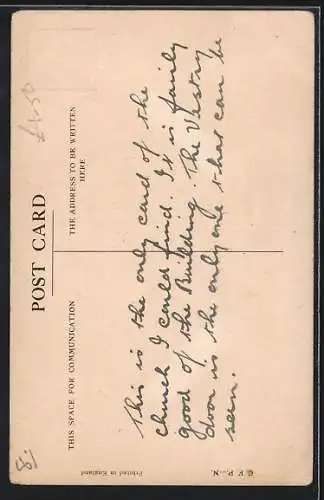 POST CARD
THIS SPACE FOR COMMUNICATION
THE ADDRESS TO BE WRITTEN
HERE
£1.50
This is the only card of the
church I could find. It is fairly
good of the Building. The Vestry
door is the only one that can be
seen.
Printed in England